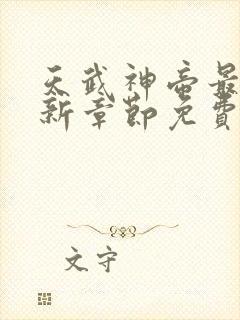 天武神帝最
新章節免費
文守